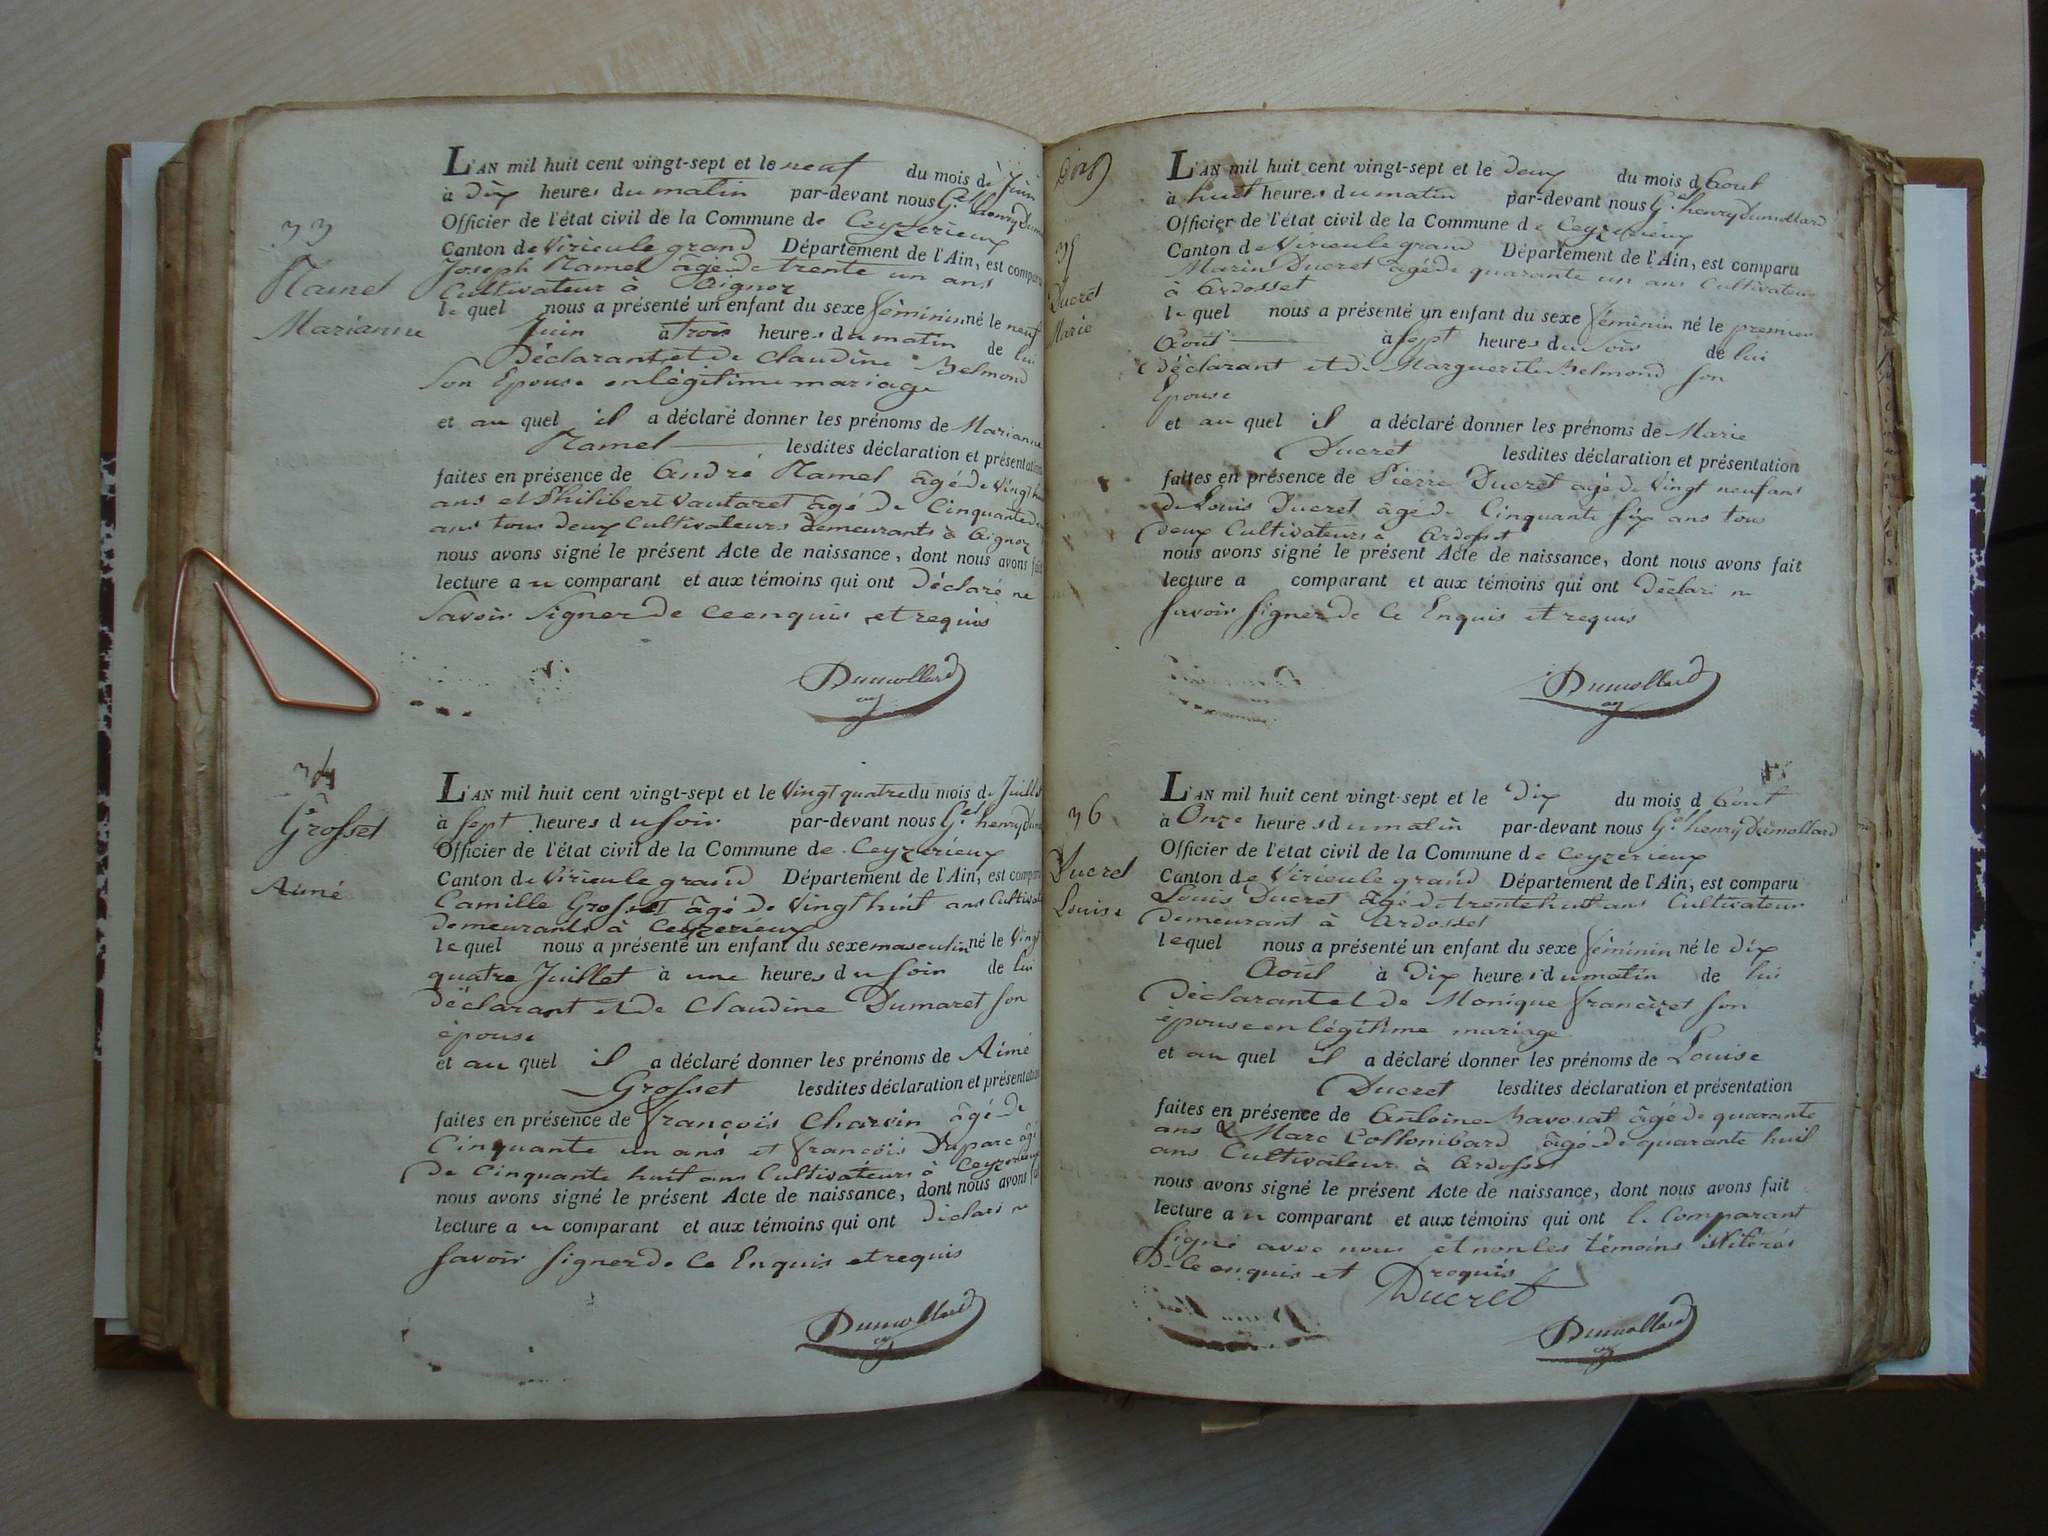 33
Ramel
Marianne
L'AN mil huit cent vingt-sept et le neuf du mois de Juin
à Dix heures du matin par-devant nous G.el henry Dum
Officier de l'état civil de la Commune de Ceyzerieux
Canton de Virieu le grand Département de l'Ain, est comparu
Joseph Ramel âgé de trente un ans
Cultivateur à Aignoz
le quel nous a présenté un enfant du sexe féminin né le neuf
Juin à trois heures du matin de lui
Déclarant et de Claudine Belmond
Son Epouse en légitime mariage
et au quel il a déclaré donner les prénoms de Marianne
Ramel lesdites déclaration et présentation
faites en présence de André Ramel âgé de vingt
ans et Philibert Vautaret âgé de Cinquante de
ans tous deux Cultivateurs demeurants à Aignoz
nous avons signé le présent Acte de naissance, dont nous avons fait
lecture au comparant et aux témoins qui ont Déclaré ne
Savoir Signer de ce enquis et requis
Dumollard
34
Grosset
Aimé
L'AN mil huit cent vingt-sept et le Vingt quatre du mois de Juillet
à Sept heures du Soir par-devant nous G.el henry Dum
Officier de l'état civil de la Commune de Ceyzerieux
Canton de Virieu le grand Département de l'Ain, est comparu
Camille Grosset âgé de Vingt huit ans Cultivat
demeurant à Ceyzerieux
le quel nous a présenté un enfant du sexe masculin né le Vingt
quatre Juillet à une heures du Soir de lui
déclarant et de Claudine Dumaret Son
épouse
et au quel il a déclaré donner les prénoms de Aimé
Grosset lesdites déclaration et présentation
faites en présence de François Charvin âgé de
Cinquante un ans et François Duparc âgé
de Cinquante huit ans Cultivateurs à Ceyzerieux
nous avons signé le présent Acte de naissance, dont nous avons fait
lecture au comparant et aux témoins qui ont déclaré ne
Savoir Signer de Ce Enquis et requis
Dumollard
35
Ducret
Marie
L'AN mil huit cent vingt-sept et le Deux du mois d'Aout
à huit heures du matin par-devant nous G.el henry Dumollard
Officier de l'état civil de la Commune de Ceyzerieux
Canton de Virieu le grand Département de l'Ain, est comparu
Marin Ducret âgé de quarante un ans Cultivateur
à Ardosset
le quel nous a présenté un enfant du sexe féminin né le premier
Aout à Sept heures du Soir de lui
déclarant et de Marguerite Belmond Son
Epouse
et au quel il a déclaré donner les prénoms de Marie
Ducret lesdites déclaration et présentation
faites en présence de Pierre Ducret âgé de Vingt neuf ans
de Louis Ducret âgé de Cinquante Six ans tous
deux Cultivateurs à Ardosset
nous avons signé le présent Acte de naissance, dont nous avons fait
lecture a comparant et aux témoins qui ont Déclaré ne
Savoir Signer de Ce Enquis et requis
Dumollard
36
Ducret
Louise
L'AN mil huit cent vingt-sept et le Dix du mois d Aout
à Onze heures du matin par-devant nous G.el henry Dumollard
Officier de l'état civil de la Commune de Ceyzerieux
Canton de Virieu le grand Département de l'Ain, est comparu
Louis Ducret âgé de trente huit ans Cultivateur
demeurant à Ardosset
le quel nous a présenté un enfant du sexe féminin né le dix
Aout à Dix heures du matin de lui
Déclarant et de Monique Francizet Son
épouse en légitime mariage
et au quel il a déclaré donner les prénoms de Louise
Ducret lesdites déclaration et présentation
faites en présence de Antoine Bavosat âgé de quarante
ans & Marc Collombard âgé de quarante huit
ans Cultivateur à Ardosset
nous avons signé le présent Acte de naissance, dont nous avons fait
lecture au comparant et aux témoins qui ont le Comparant
Signé avec nous et non les témoins illiterés
De Ce enquis et requis
Ducret
Dumollard